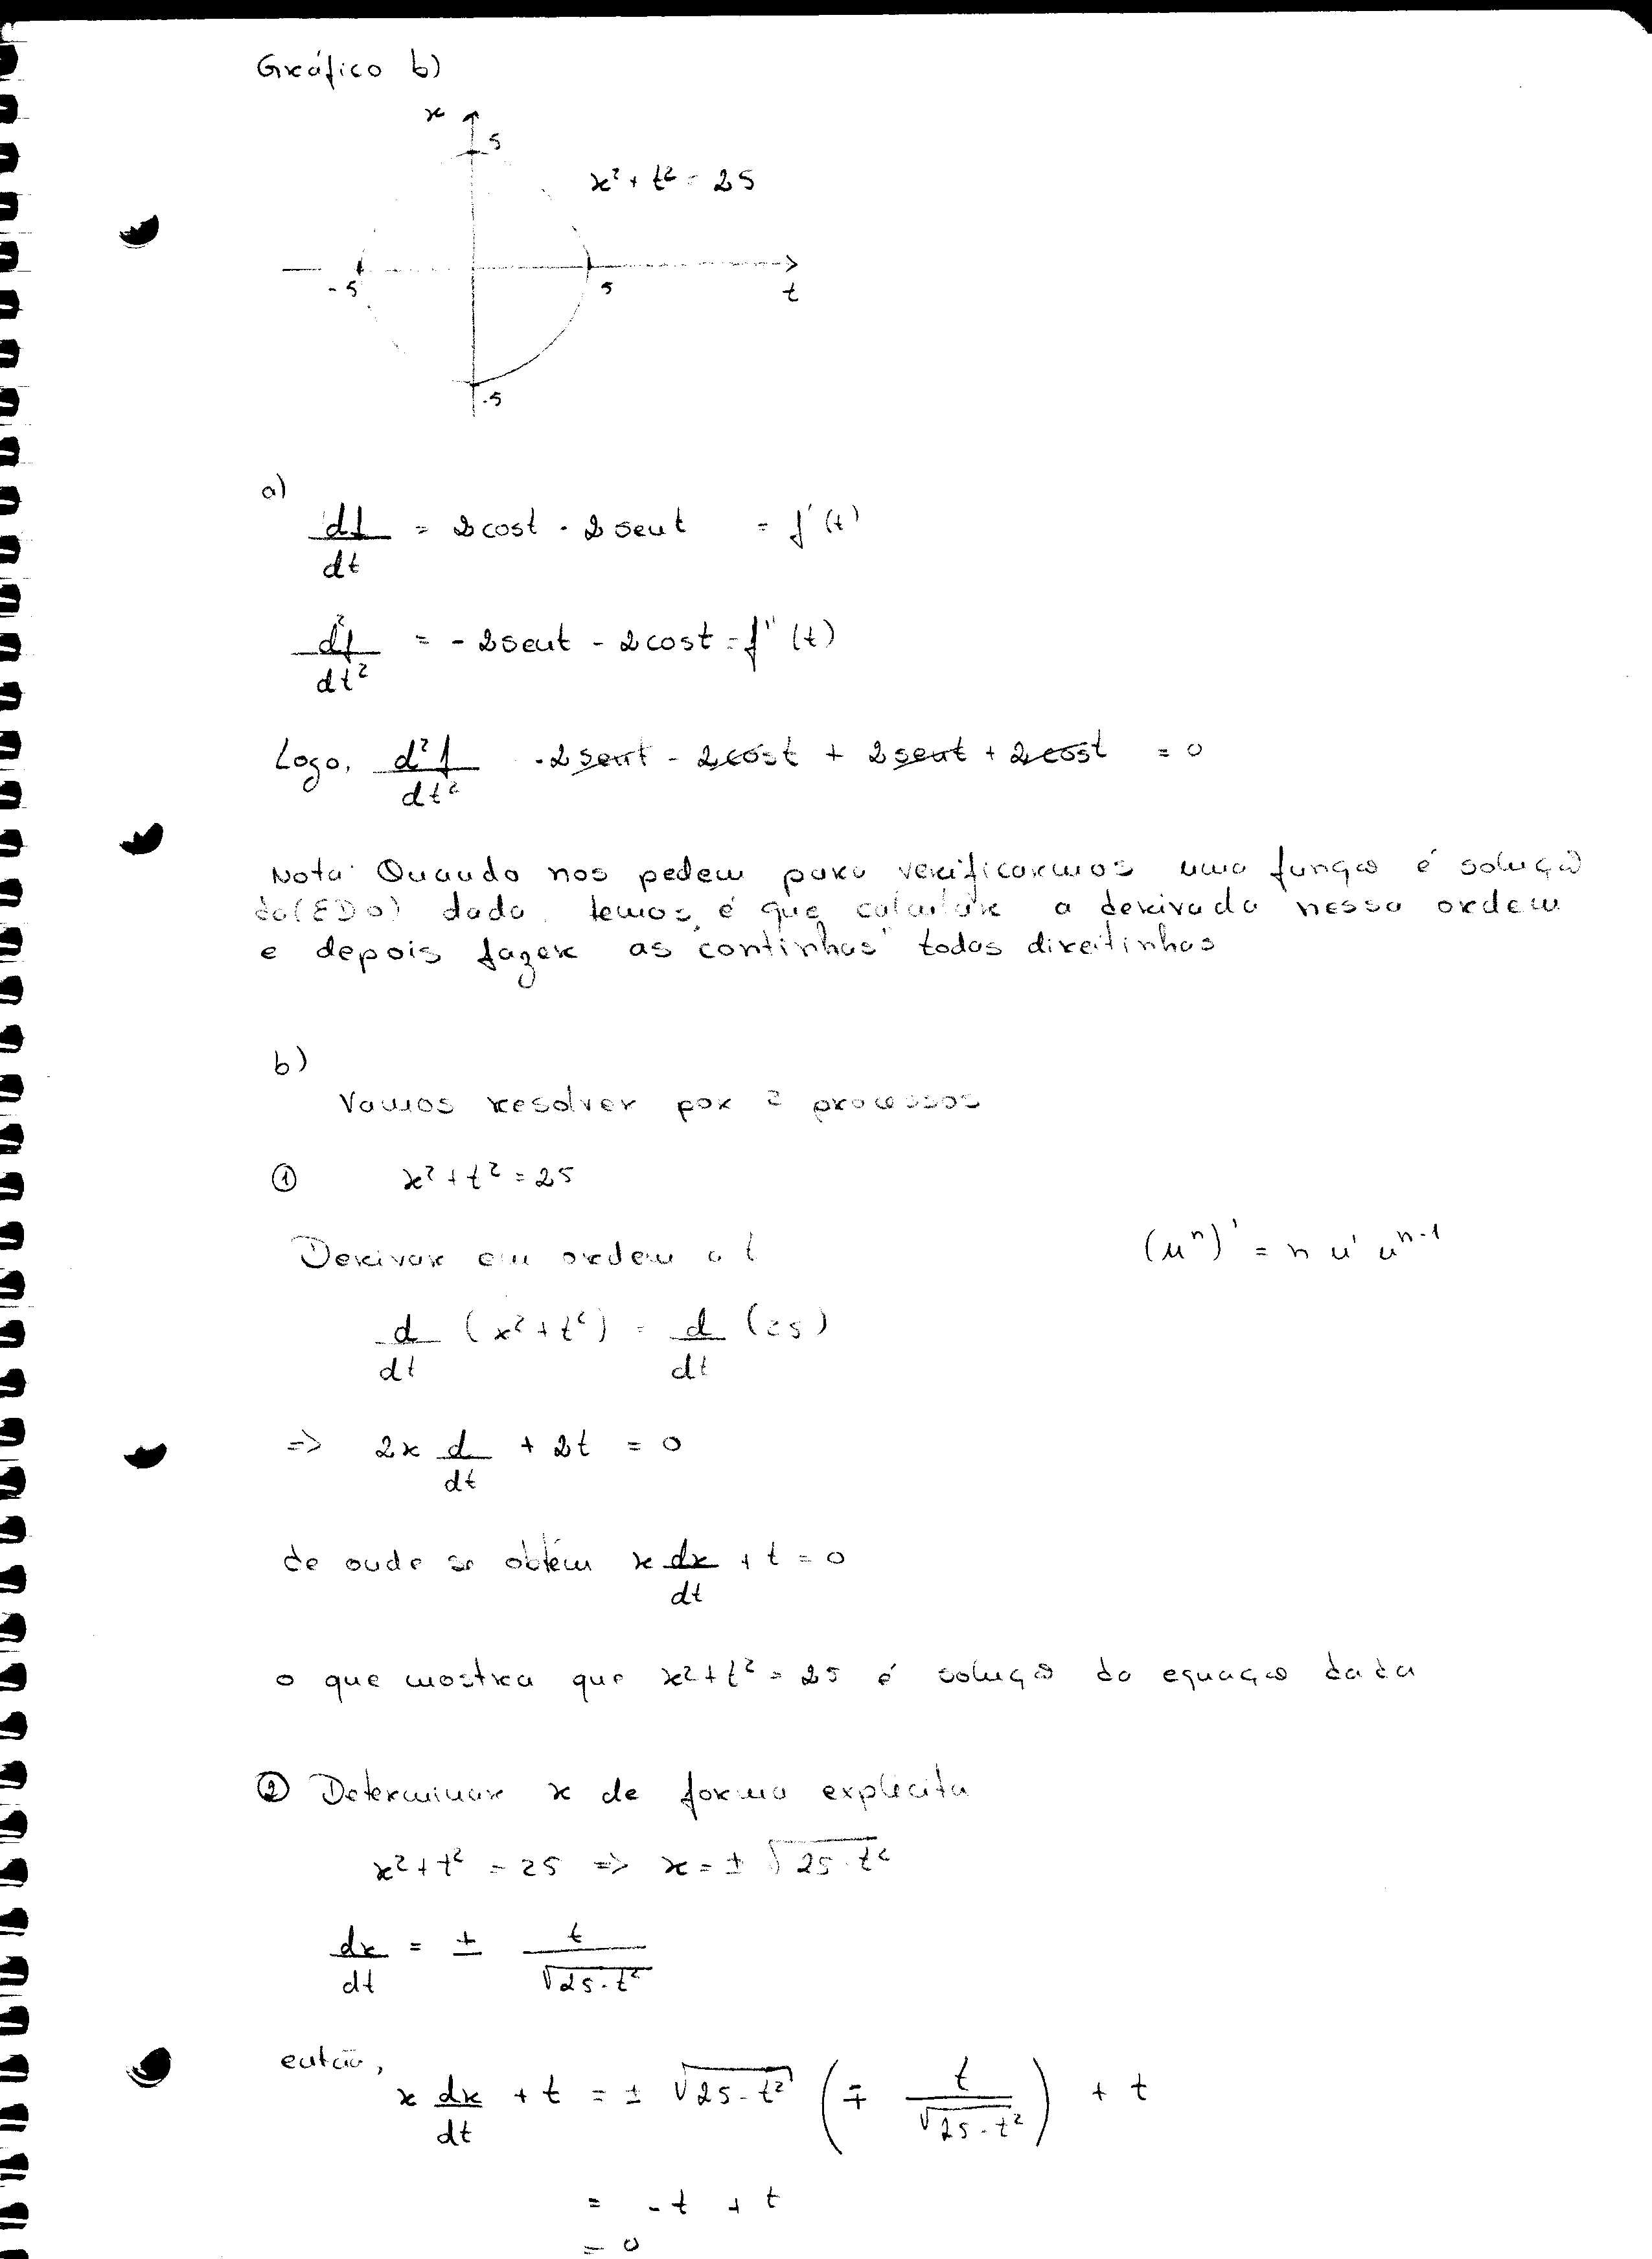 Gráfico b)
x
5
x² + t² = 25
-5
5
t
-5
a)
df/dt = 2cost - 2sent = f'(t)
d²f/dt² = -2sent - 2cost = f''(t)
Logo, d²f/dt² -2sent - 2cost + 2sent + 2cost = 0
Nota: Quando nos pedem para verificarmos uma função é solução
da(EDO) dada, temos é que calcular a derivada nessa ordem
e depois fazer as "continhas" todas direitinhas
b)
Vamos resolver por 2 processos
① x² + t² = 25
Derivar em ordem a t (uⁿ)' = n u' uⁿ⁻¹
d/dt (x² + t²) = d/dt (25)
=> 2x d/dt + 2t = 0
de onde se obtém x dx/dt + t = 0
o que mostra que x² + t² = 25 é solução da equação dada
② Determinar x de forma explícita
x² + t² = 25 => x = ± √(25 - t²)
dx/dt = ± t/√(25 - t²)
então,
x dx/dt + t = ± √(25 - t²) (∓ t/√(25 - t²)) + t
= -t + t
= 0